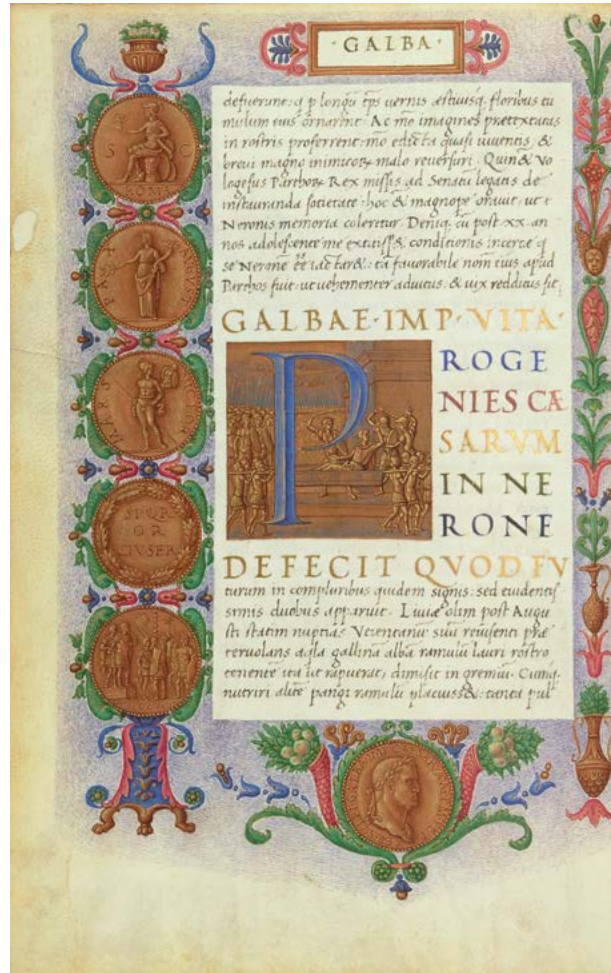 · GALBA ·
defuerunt: q p longũ tp̃s uernis æstiuisq. floribus tu
mulum eius ornarent: Ac mo imagines prætextatas
in rostris proferrent: mo edicta quasi uiuentis, &
breui magno inimicoꝝ malo reuersuri. Quin & Vo
logesus Parthoꝝ Rex missis ad Senatũ legatis de
instauranda societate: hoc & magnopẽ orauit, ut
Neronis memoria coleretur. Deniq. cũ post .xx. an
nos adolescente me extitiss&. conditionis incertæ q
se Neronẽ eẽ iactar&: tã fauorabile nom̃ eius apud
Parthos fuit: ut uehementer adiutus, & uix redditus sit.
GALBAE·IMP·VITA·
P
ROGE
NIES CÆ
SARVM
IN NE
RONE
DEFECIT QVOD FV
turum in compluribus quidem signis: sed euidentis
simis duobus apparuit. Liuiæ olim post Augu
sti statim nuptias Veientanũ suũ reuisenti præ
teruolans aq̃la gallinã albã ramulũ lauri rostro
tenentẽ ita ut rapuerat, dimisit in gremiũ. Cumq.
nutriri alitẽ pangi ramulũ placuiss&: tanta pul
S C
ROMA
PAX AVGVST
MARS VICTOR
SPQR
OB
CIV SER